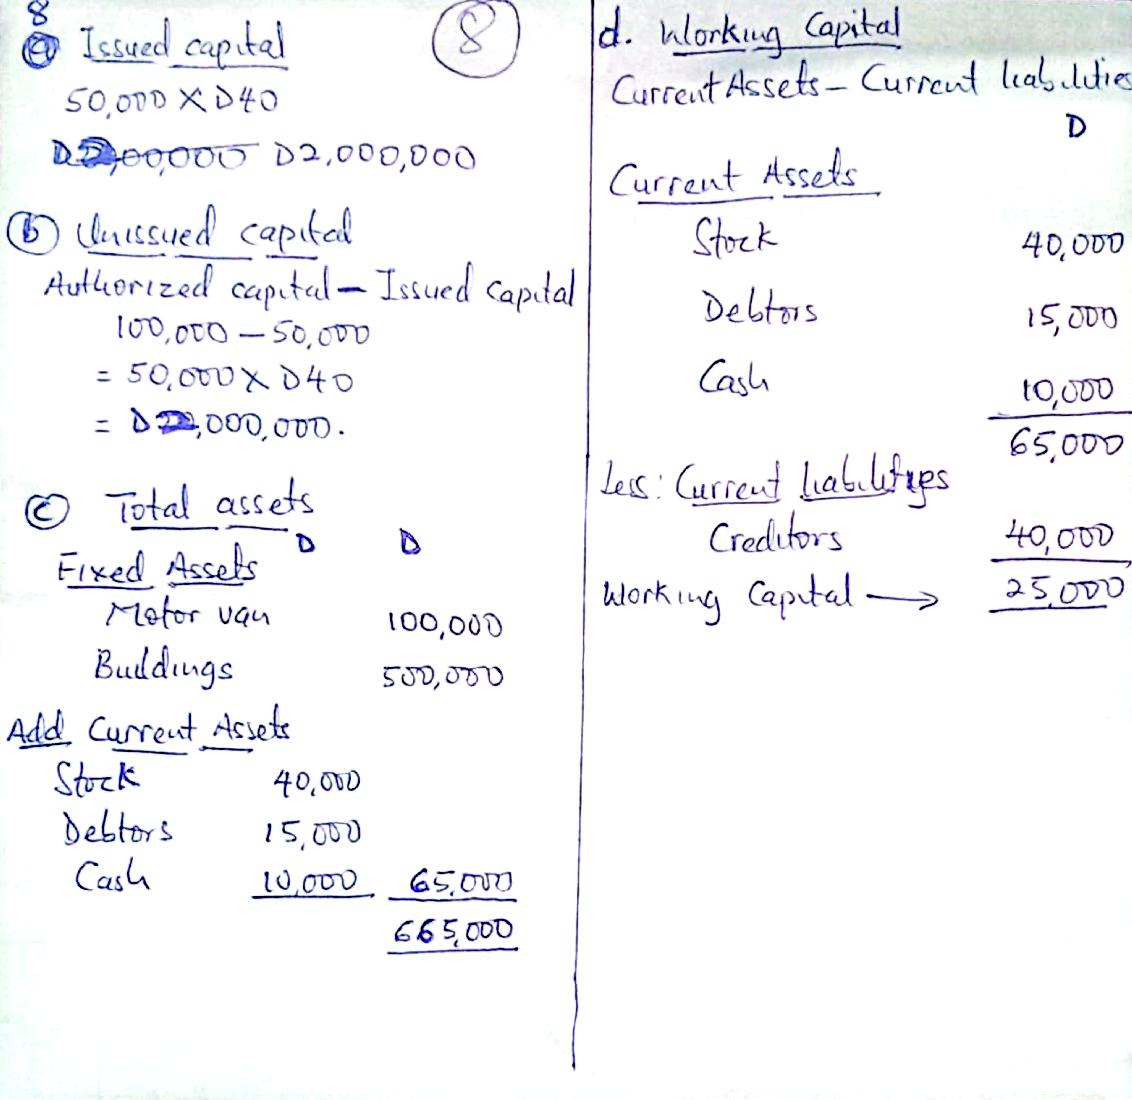 8
(a) Issued capital
8
50,000 X D40
D2,000,000
(b) Unissued capital
Authorized capital – Issued Capital
100,000 – 50,000
= 50,000 X D40
= D2,000,000.
(c) Total assets
D D
Fixed Assets
Motor van 100,000
Buildings 500,000
Add Current Assets
Stock 40,000
Debtors 15,000
Cash 10,000 65,000
665,000
d. Working Capital
Current Assets – Current liabilities
D
Current Assets
Stock 40,000
Debtors 15,000
Cash 10,000
65,000
Less: Current liabilityes
Creditors 40,000
Working Capital → 25,000